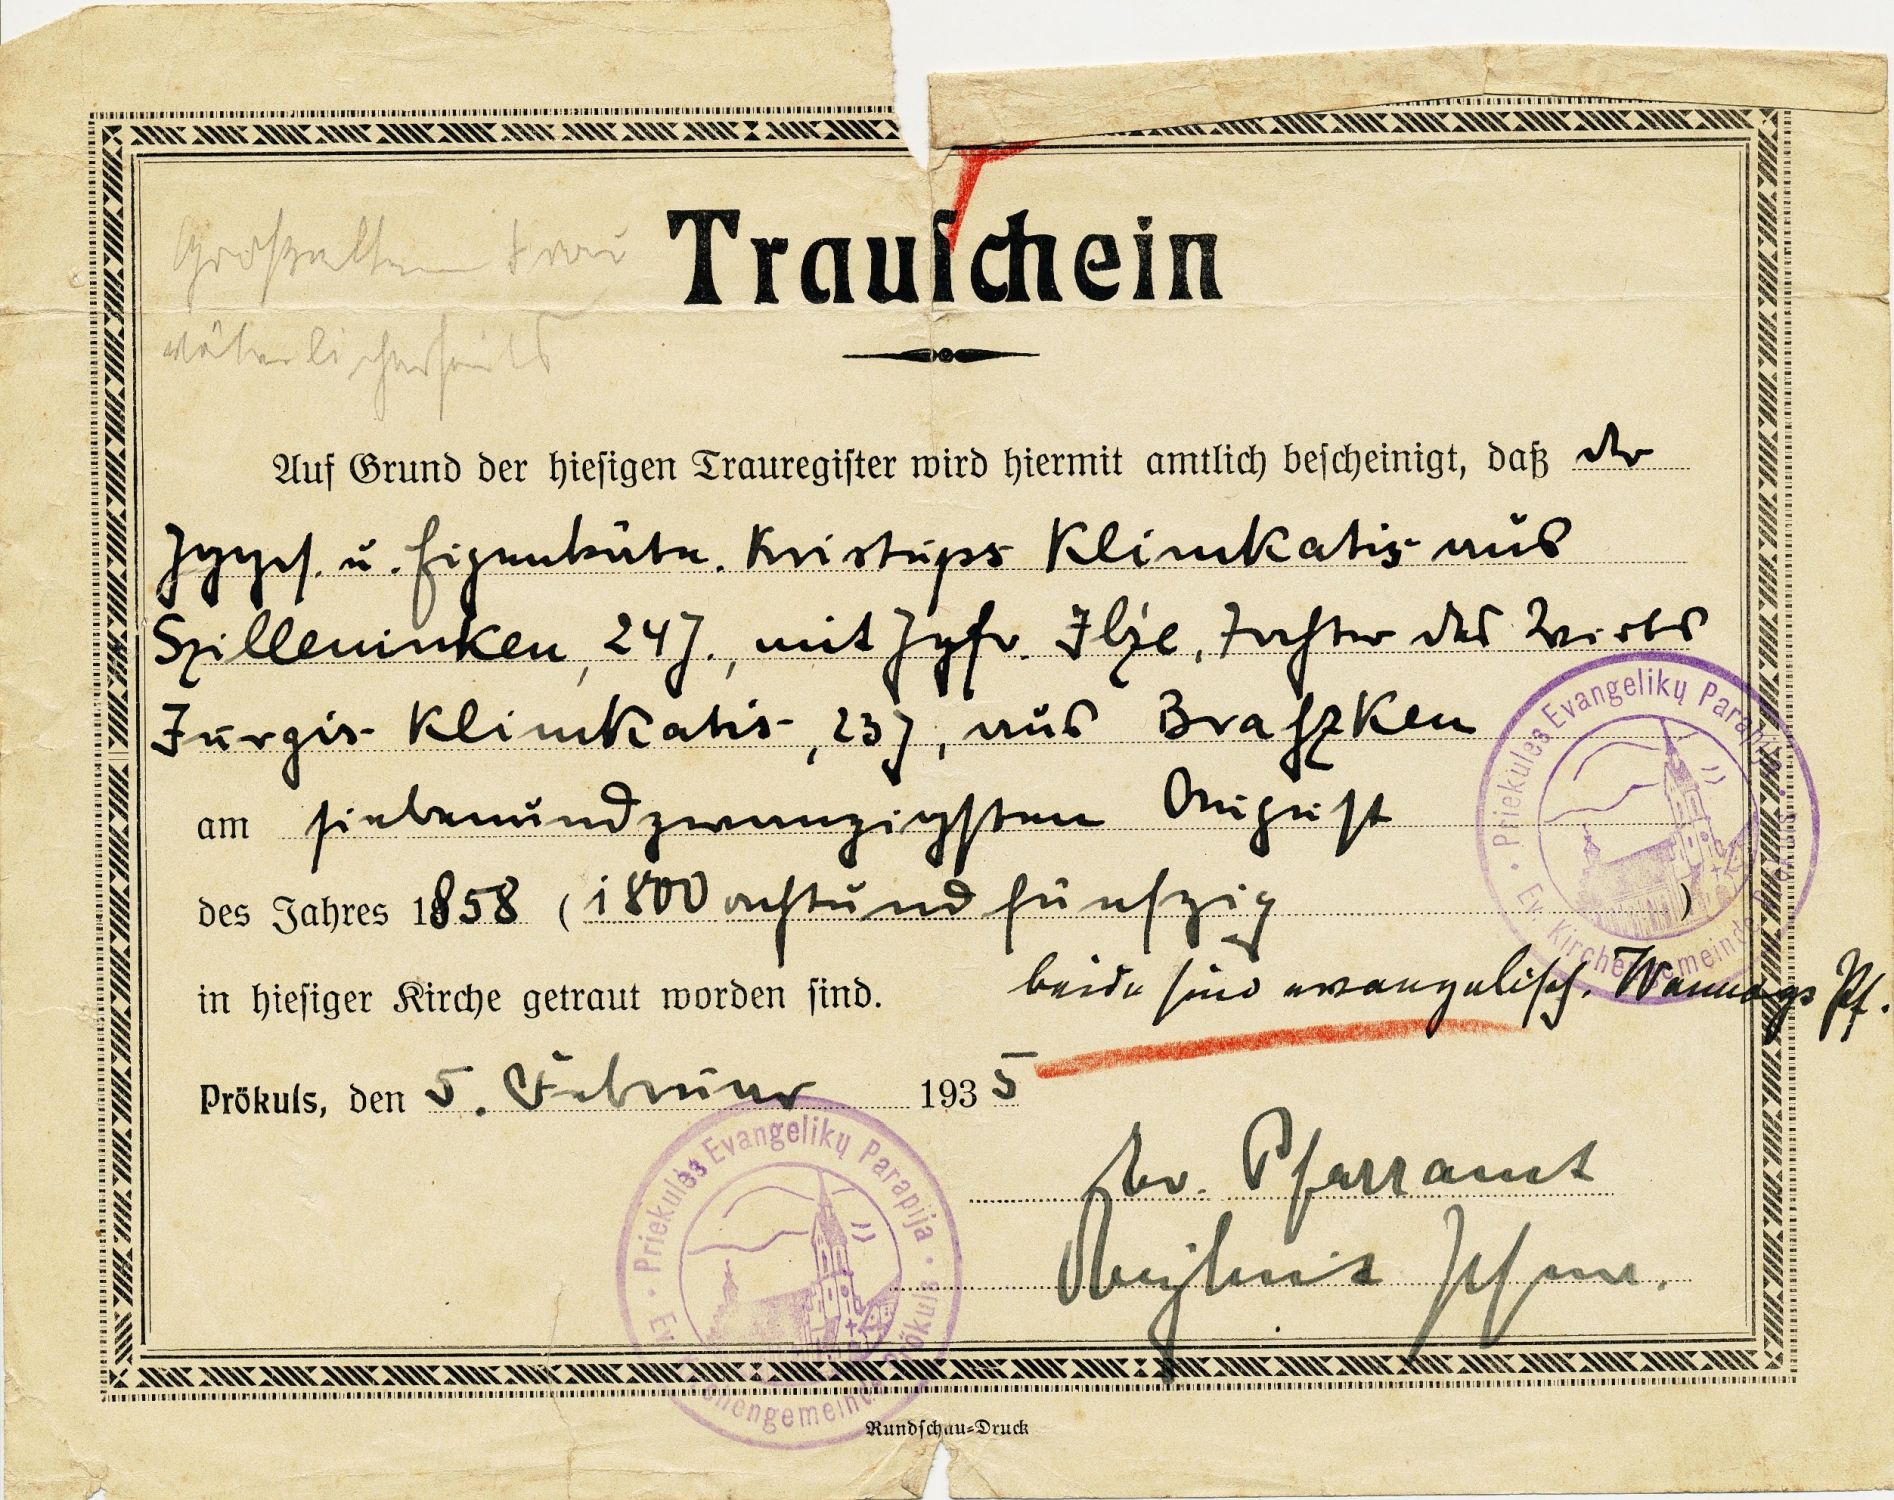 Großeltern Frau
väterlicherseits
Trauschein
Auf Grund der hiesigen Trauregister wird hiermit amtlich bescheinigt, daß der
Jggs. u. Eigenkätn. Kristups Klimkatis aus
Szilleninken, 24 J., mit Jgfr. Ilze, Tochter des Wirts
Jurgis Klimkatis, 23 J, aus Braszken
am siebenundzwanzigsten August
des Jahres 1858 (1800 achtundfünfzig)
in hiesiger Kirche getraut worden sind.
beide sind evangelisch. Wannags Pf.
Prökuls, den 5. Februar 1935
Ev. Pfarramt
Priekulės Evangelikų Parapija
Ev. Kirchengemeinde Prökuls
Priekulės Evangelikų Parapija
Ev. Kirchengemeinde Prökuls
Rundschau-Druck